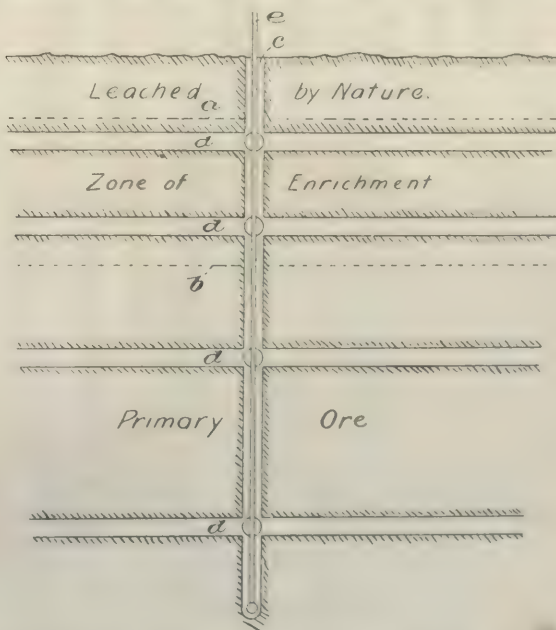 e
c
Leached by Nature.
a
d
Zone of Enrichment
d
b
d
Primary Ore
d